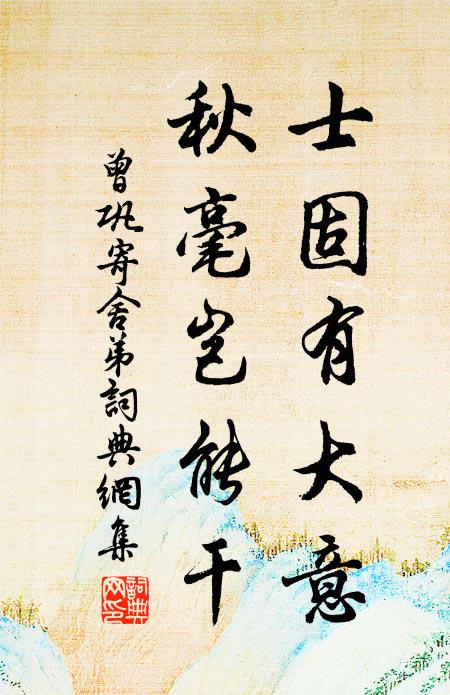 士固有大意
秋毫岂能干
曾巩寄舍弟詞典網集
詞典網印